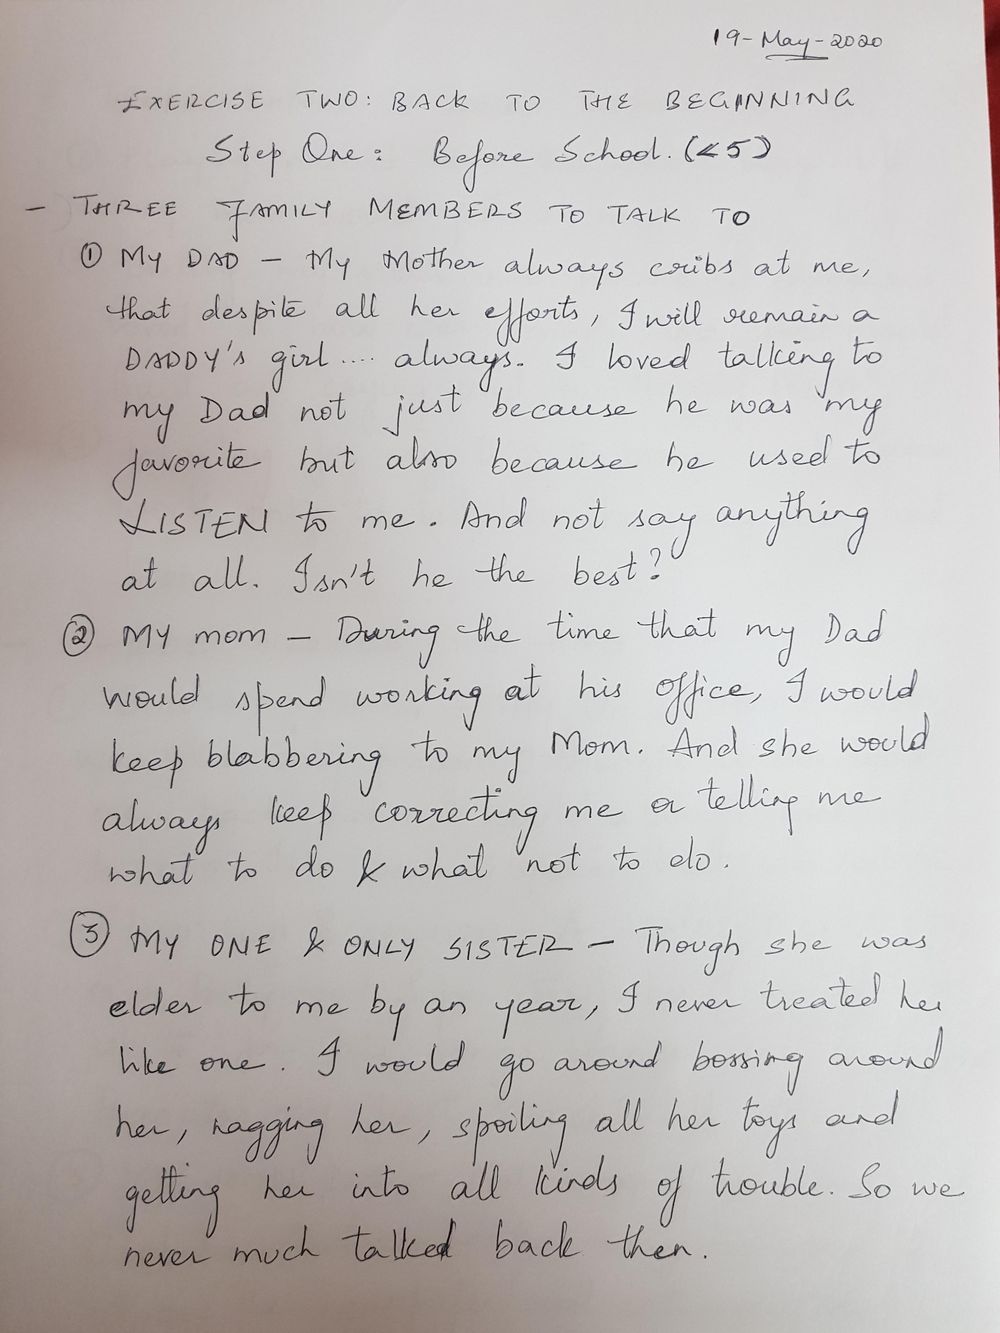 19-May-2020
EXERCISE TWO: BACK TO THE BEGINNING
Step One: Before School. (<5)
- THREE FAMILY MEMBERS TO TALK TO
① My DAD - My Mother always cribs at me,
that despite all her efforts, I will remain a
DADDY's girl .... always. I loved talking to
my Dad not just because he was my
favorite but also because he used to
LISTEN to me. And not say anything
at all. Isn't he the best?
② MY mom - During the time that my Dad
would spend working at his office, I would
keep blabbering to my Mom. And she would
always keep correcting me or telling me
what to do & what not to do.
③ MY ONE & ONLY SISTER - Though she was
elder to me by an year, I never treated her
like one. I would go around bossing around
her, nagging her, spoiling all her toys and
getting her into all kinds of trouble. So we
never much talked back then.